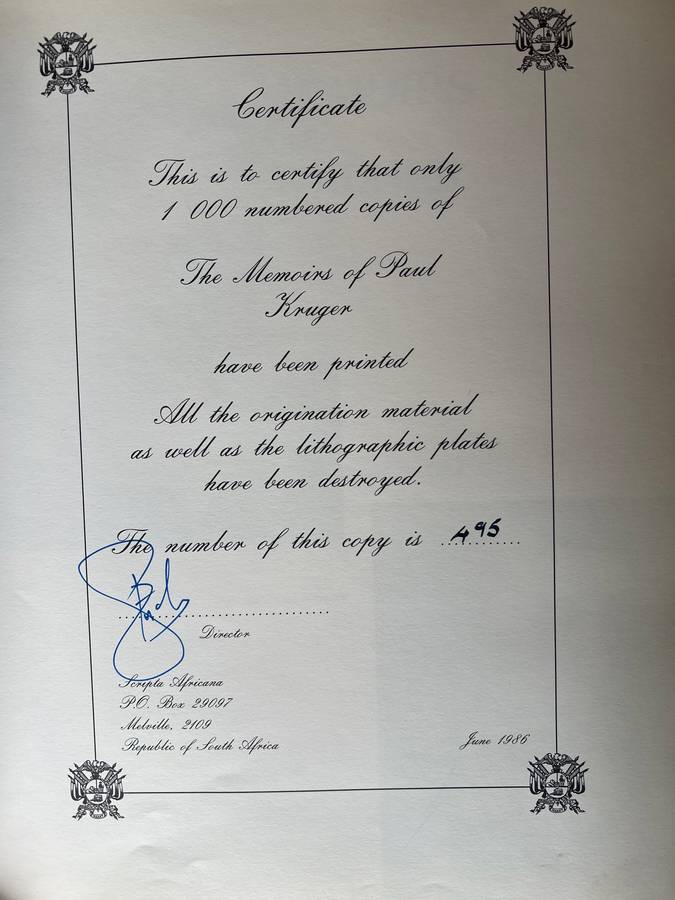 Certificate
This is to certify that only
1 000 numbered copies of
The Memoirs of Paul
Kruger
have been printed
All the origination material
as well as the lithographic plates
have been destroyed.
The number of this copy is 495
Director
Scripta Africana
P.O. Box 29097
Melville, 2109
Republic of South Africa
June 1986